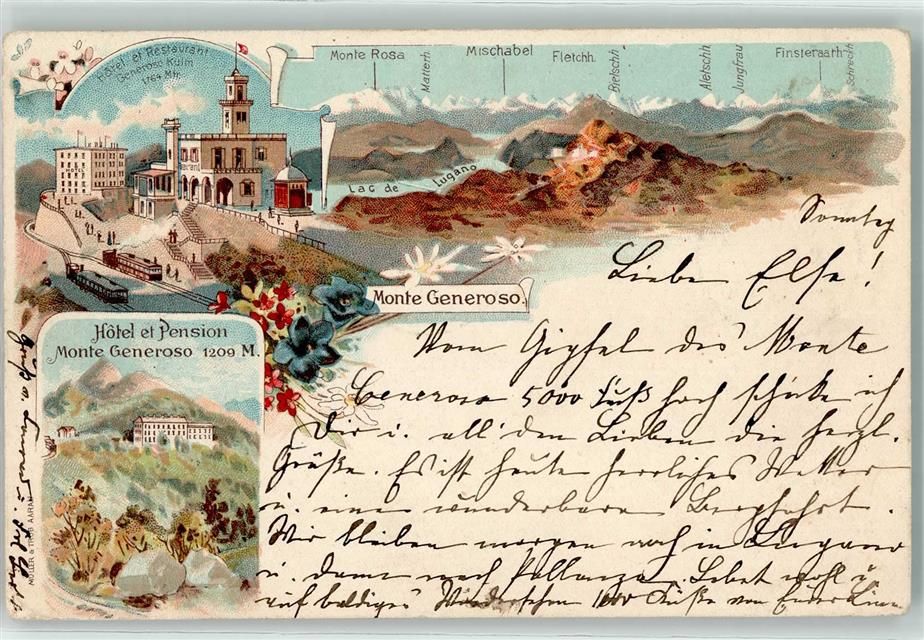 Hôtel et Restaurant
Generoso Kulm
1704 Mtr.
Monte Rosa
Matterh.
Mischabel
Fletchh.
Bietschh
Aletschh
Jungfrau
Finsteraarh
Schreckh
Lac de Lugano
HOTEL
Monte Generoso.
Hôtel et Pension
Monte Generoso 1209 M.
Sonntag
Liebe Else!
Vom Gipfel des Monte
Generoso 5000 Fuß hoch schicke ich
Dir u. all' den Lieben die herzl.
Grüße. Es ist heute herrliches Wetter
u. eine wunderbare Bergfahrt.
Wir bleiben morgen noch in Lugano
u. dann nach Pallanza. Lebet wohl u
auf baldiges Wiedersehen 1000 Küße von Eurer
Gruß an
MÜLLER & TRÜB AARAU